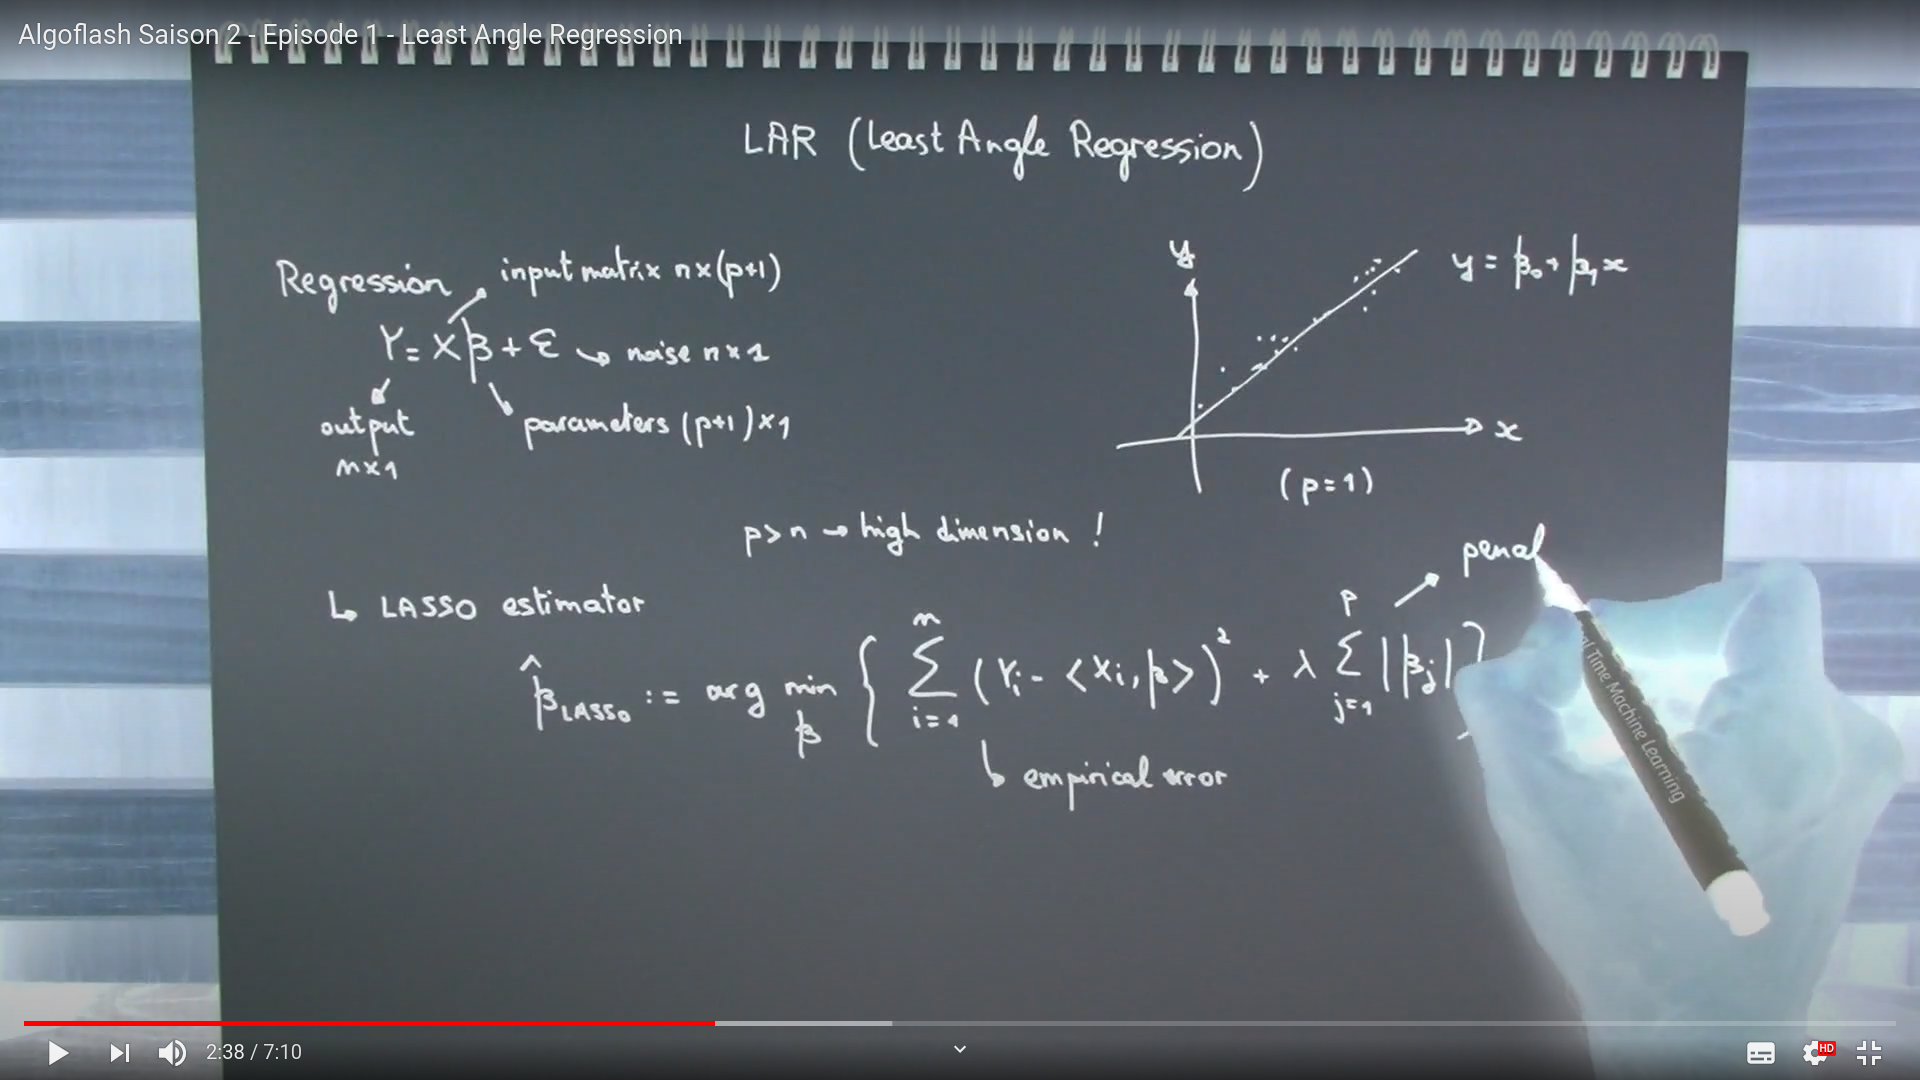 Algoflash Saison 2 - Episode 1 - Least Angle Regression
LAR (Least Angle Regression)
Regression
input matrix n×(p+1)
Y = Xβ + ε
noise n×1
output
n×1
parameters (p+1)×1
y
y = β₀ + β₁x
x
(p=1)
p>n → high dimension !
↳ LASSO estimator
penal
β̂LASSO := arg min β { Σ i=1 n (Yi - <Xi, β>)² + λ Σ j=1 p |βj| }
↳ empirical error
Real Time Machine Learning
2:38 / 7:10
HD